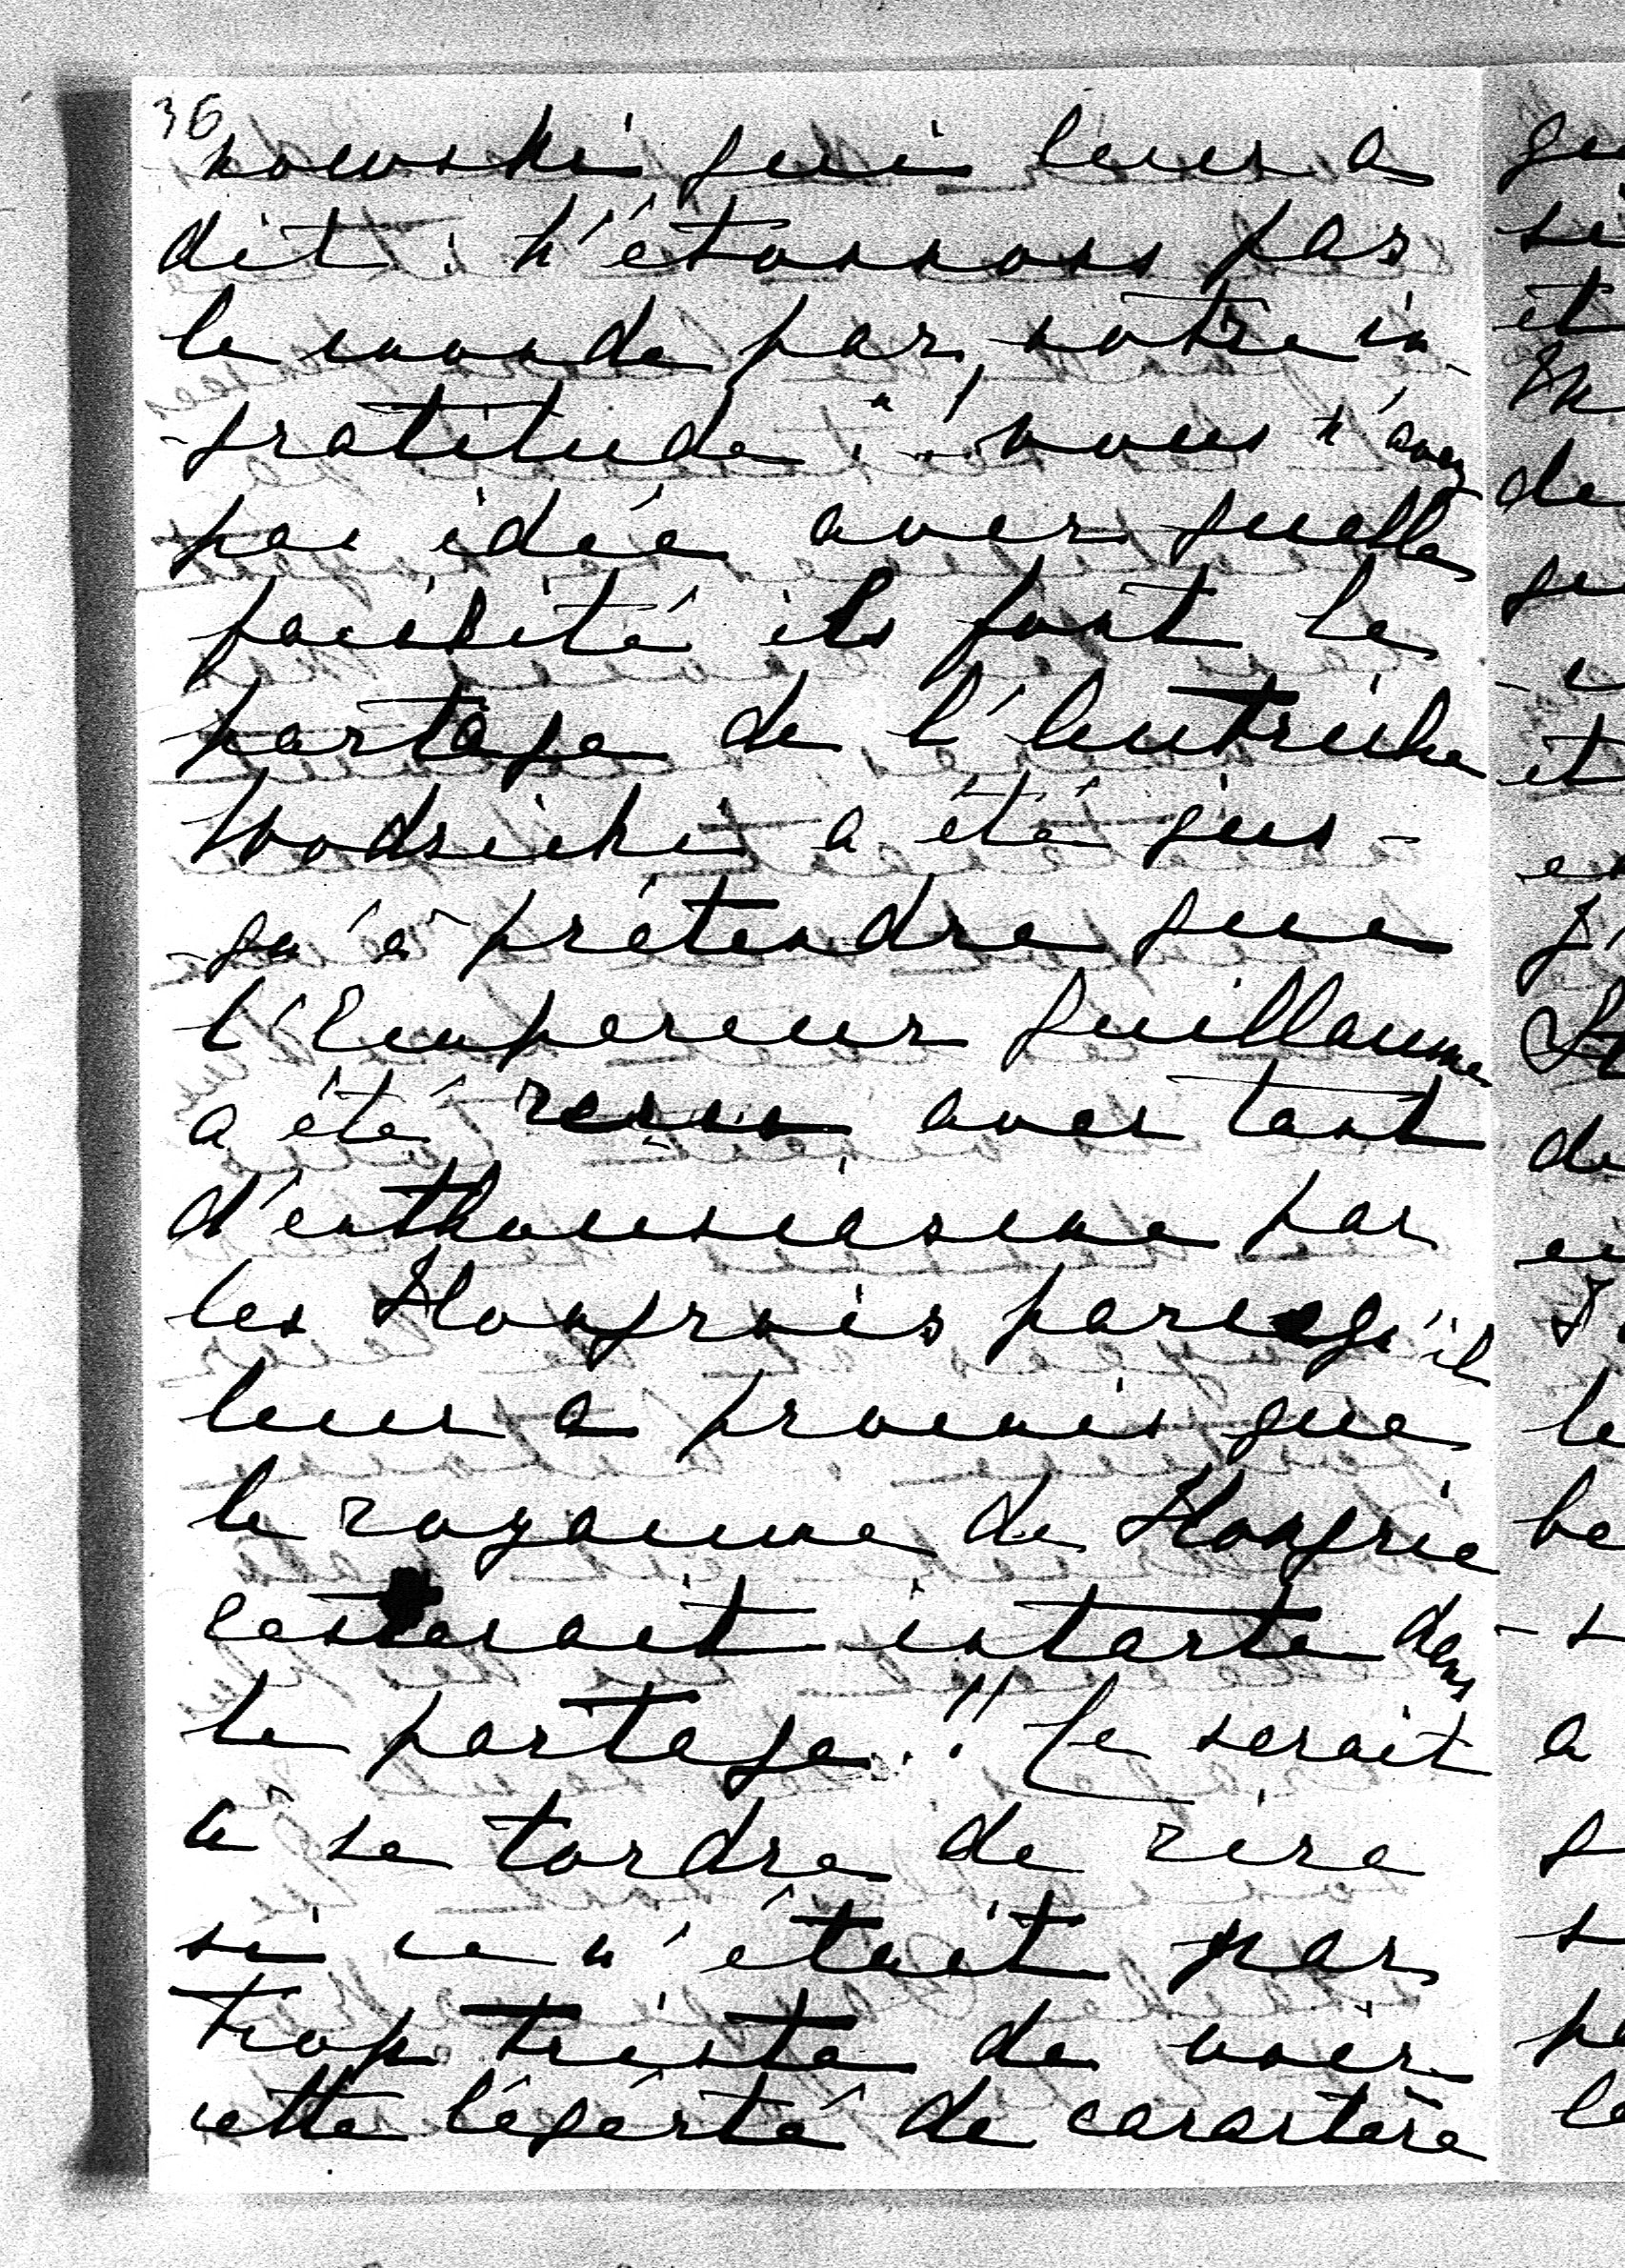 36
nowski qui leur a
dit: n'étonnons pas
le monde par notre in-
gratitude!" vous n'avez
pas idée avec quelle
facilité ils font le
partage de l'Autriche
Wodzicki a été jus-
qu'à prétendre que
l'Empereur Guillaume
a été recu avec tant
d'enthousiasme par
les Hongrois parcequ'il
leur a promis que
le royaume de Hongrie
resterait intacte dans
le partage!! Ce serait
à se tordre de rire
si ce n'était par
trop triste de voir
cette légèrté de caractère